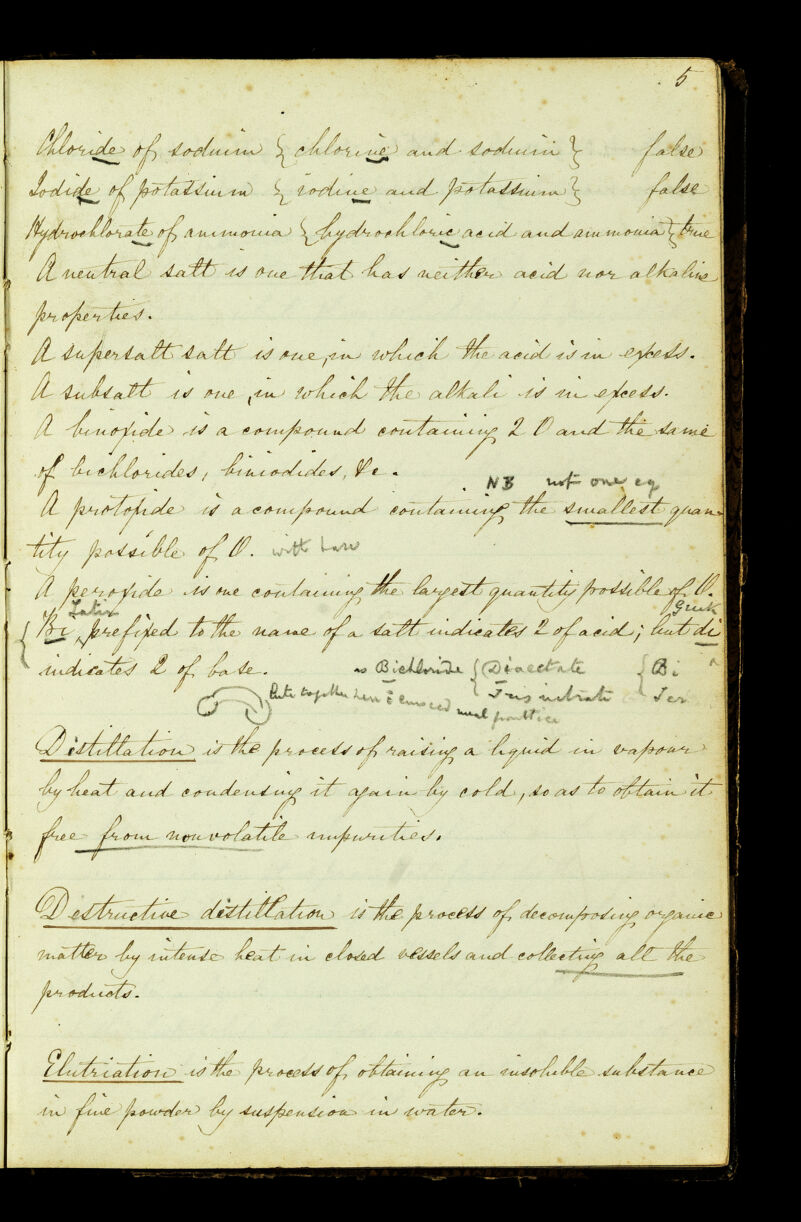 5
Chloride of sodium { chlorine and sodium } false
Iodide of potassium { iodine and potassium } false
Hydrochlorate of ammonia { hydrochloric acid and ammonia } true
A neutral salt is one that has neither acid nor alkaline
properties.
A supersalt salt is one, in which the acid is in excess.
A subsalt is one, in which the alkali is in excess.
A binoxide is a compound containing 2 O and the same
of bichlorides, biniodides, &c.
NB not one eq
A protoxide is a compound containing the smallest quan-
tity possible of O. with base
A peroxide is one containing the largest quantity possible of O.
Latin Greek
{ Bi, prefixed to the name of a salt indicates 2 of acid; but di
indicates 2 of base. as Bichloride { Diacetate { Bi
Trisnitrate Ter
together
Distillation is the process of raising a liquid in vapour
by heat and condensing it again by cold, so as to obtain it
free from nonvolatile impurities.
Destructive distillation is the process of decomposing organic
matter by intense heat in closed vessels and collecting all the
products.
Elutriation is the process of obtaining an insoluble substance
in fine powder by suspension in water.